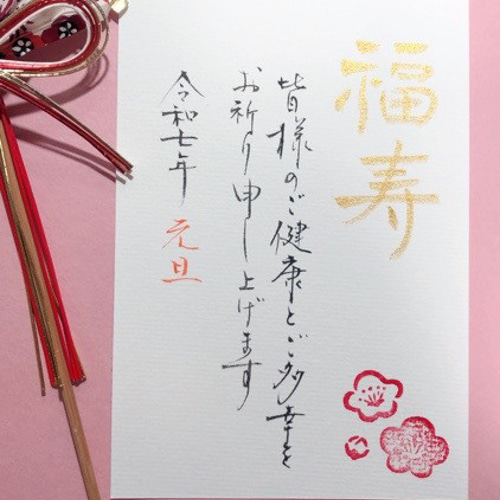 福寿
皆様のご健康とご多幸を
お祈り申し上げます
令和七年 元旦